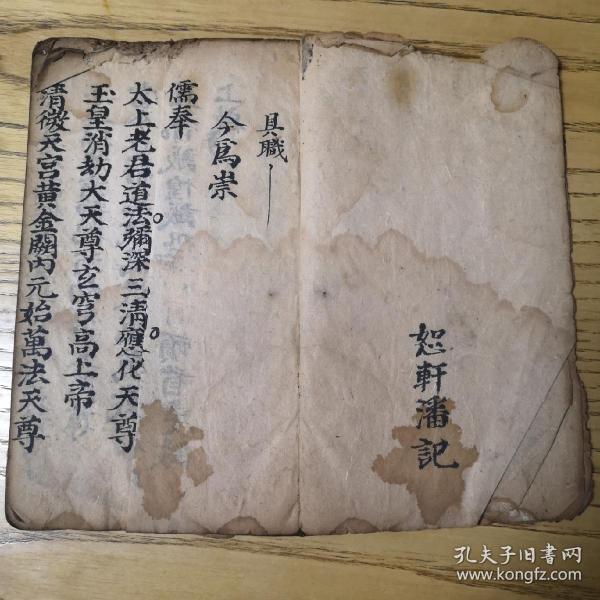 恕軒潘記
具職
今爲崇
儒奉
太上老君道法彌深三清應化天尊
玉皇消劫大天尊玄穹高上帝
清微天宮黃金闕内元始萬法天尊
孔夫子旧书网
www.kongfz.com